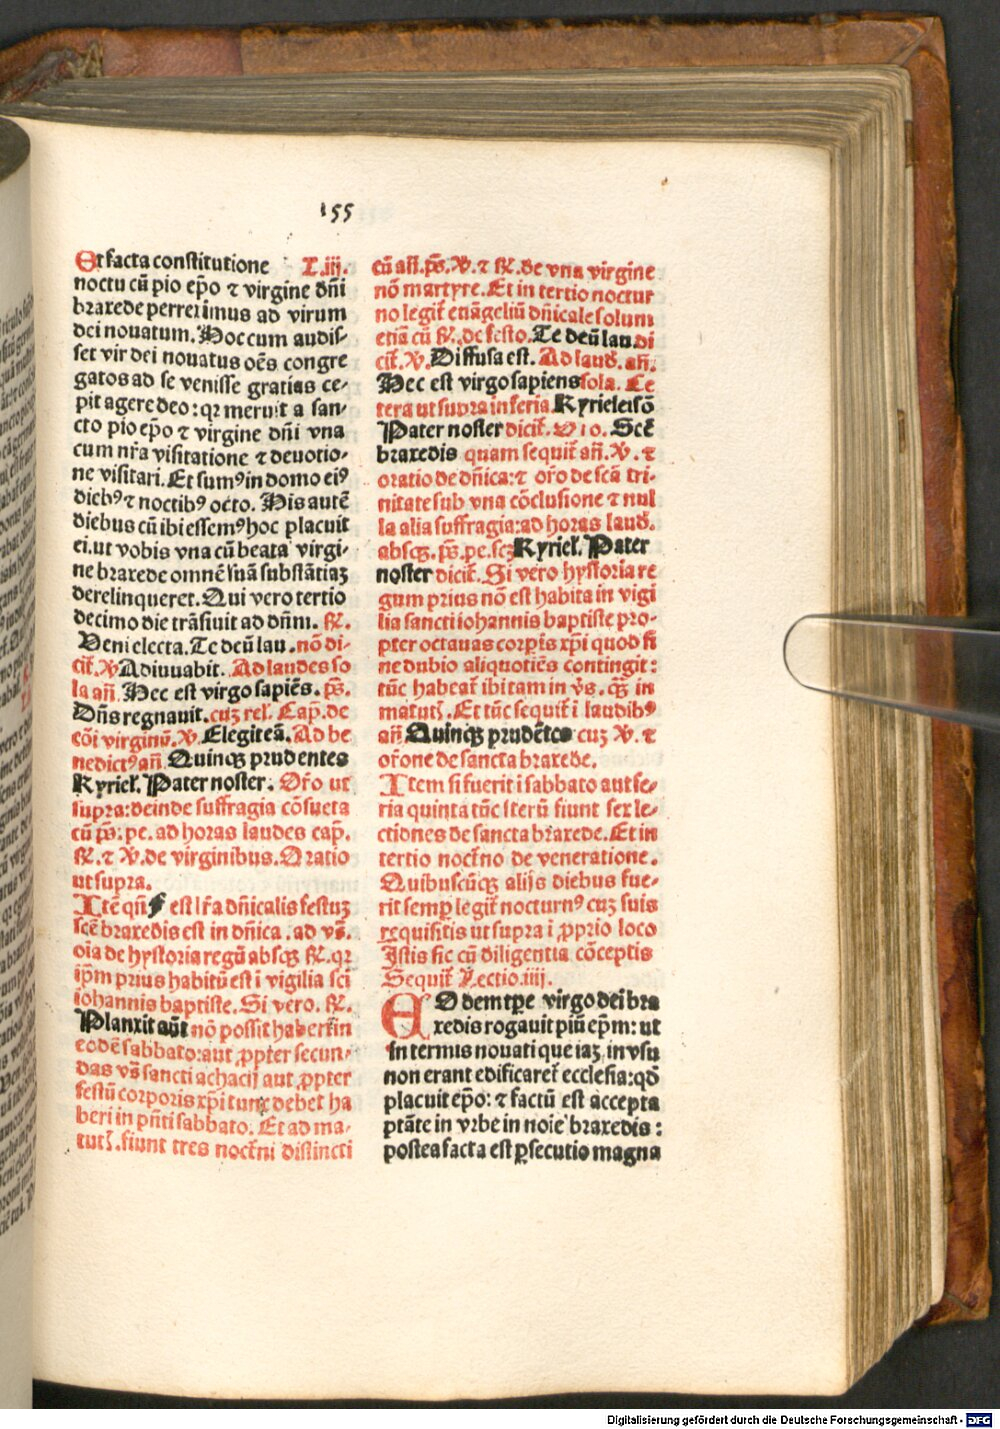 155
Et facta constitutione L.iij.
noctu cū pio ep̄o ⁊ virgine dn̄i
braxede perreximus ad virum
dei nouatum. Hoc cum audis⸗
set vir dei nouatus oēs congre
gatos ad se venisse gratias ce⸗
pit agere deo: qꝛ meruit a san⸗
cto pio ep̄o ⁊ virgine dn̄i vna
cum nr̄a visitatione ⁊ deuotio⸗
ne visitari. Et sumꝰ in domo eiꝰ
diebꝰ ⁊ noctibꝰ octo. His autē
diebus cū ibi essemꝰ hoc placuit
ei. ut vobis vna cū beata virgi⸗
ne braxede omnē suā substātiaꝫ
derelinqueret. Qui vero tertio
decimo die trāsiuit ad dn̄m. ꝶ.
Veni electa. Te deū lau. nō di⸗
cit̄. ℣ Adiuuabit. Ad laudes so
la an̄. Hec est virgo sapiēs. ps̄.
Dn̄s regnauit. cuꝫ rel. Cap̄. de
cōi virginū. ℣. Elegit eā. Ad be
nedictꝰ an̄. Quinqꝫ prudentes
Kyriel̄. Pater noster. Or̄o ut
supra: deinde suffragia cōsueta
cū ps̄: pe. ad horas laudes cap̄.
ꝶ. ⁊ ℣. de virginibus. Oratio
ut supra.
Itē qn̄ f est lr̄a dn̄icalis festuꝫ
scē braxedis est in dn̄ica. ad vs̄.
oīa de hystoria regū absqꝫ ꝶ. qꝛ
ip̄m prius habitū est ī vigilia sc̄i
iohannis baptiste. Si vero. ꝶ.
Planxit aūt nō possit haberi in
eodē sabbato: aut ꝓpter secun⸗
das vs̄ sancti achacij aut ꝓpter
festū corporis xp̄i tunc debet ha
beri in pn̄ti sabbato. Et ad ma⸗
tut̄. fiunt tres noct̄ni distincti
cū an̄. ps̄. ℣. ⁊ ꝶ. de vna virgine
nō martyre. Et in tertio noctur
no legit̄ euāgeliū dn̄icale solum
etiā cū ꝶ. de festo. Te deū lau. di
cit̄. ℣. Diffusa est. Ad laud̄. an̄.
Hec est virgo sapiens sola. Ce
tera ut supra in feria. Kyrieleisō
Pater noster dicit̄. Scē
braxedis quam sequit̄ an̄. ℣. ⁊
oratio de dn̄ica: ⁊ or̄o de scā tri⸗
nitate sub vna cōclusione ⁊ nul
la alia suffragia: ad horas laud̄.
absqꝫ. ps̄. pe. sꝫ Kyriel̄. Pater
noster dicit̄. Si vero hystoria re
gum prius nō est habita in vigi
lia sancti iohannis baptiste pro⸗
pter octauas corpīs xp̄i quod si
ne dubio aliquotiēs contingit:
tūc habeat̄ ibi tam in vs̄. qꝫ in
matut̄. Et tūc sequit̄ ī laudibꝰ
an̄ Quinqꝫ prudētes cuꝫ ℣. ⁊
or̄one de sancta braxede.
Item si fuerit ī sabbato aut fe⸗
ria quinta tūc iterū fiunt sex le⸗
ctiones de sancta braxede. Et in
tertio noct̄no de veneratione.
Quibuscūqꝫ alijs diebus fue⸗
rit semꝑ legit̄ nocturnꝰ cuꝫ suis
requisitis ut supra ī ꝓprio loco
Istis sic cū diligentia cōceptis
Sequit̄ Lectio.iiij.
EOdem tꝑe virgo dei bra
xedis rogauit piū ep̄m: ut
in termis nouati que iaꝫ in vsu
non erant edificaret̄ ecclesia: qd̄
placuit ep̄o: ⁊ factū est accepta
ptāte in vrbe in noīe braxedis:
postea facta est ꝑsecutio magna
Digitalisierung gefördert durch die Deutsche Forschungsgemeinschaft - DFG